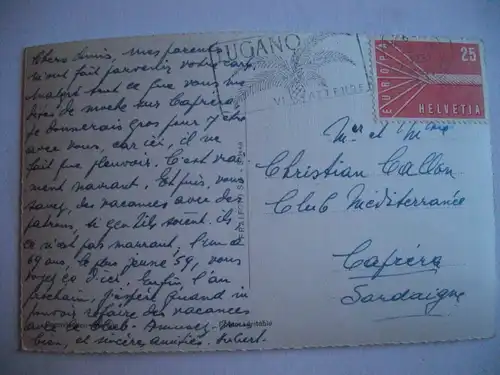 Chers Amis, mes parents
m'ont fait parvenir votre carte
Malgré tout ce que vous me
dites de moche sur Caprera,
je donnerais gros pour y être
avec vous, car ici, il ne
fait que pleuvoir. C'est vrai
ment navrant. Et puis, vous
savez, des vacances avec des
patrons, si gentils soient-ils,
ce n'est pas marrant. L'un a
69 ans, le plus jeune 59, vous
voyez ça d'ici. Enfin l'an
prochain, j'espère quand m
pouvoir refaire des vacances
avec le Club. Amusez-vous
bien, et sincères amitiés.
LUGANO
VI ATTENDE
EUROPA
25
HELVETIA
Mr et Mme
Christian Callon
Club Méditerranée
Caprera
Sardaigne